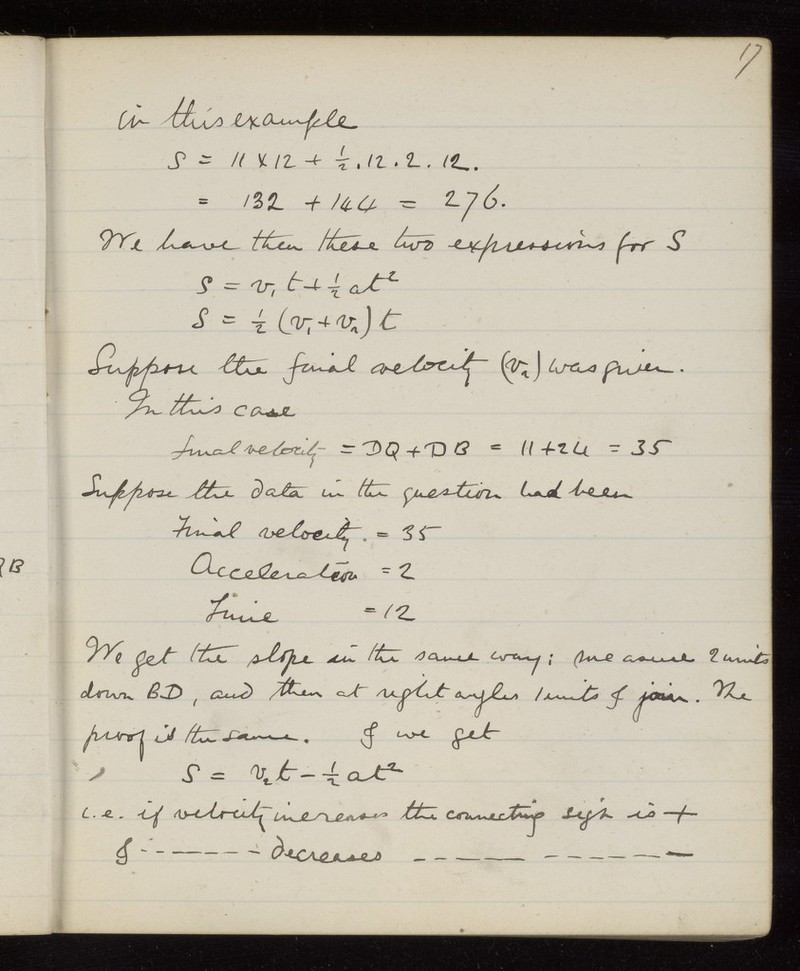 17
in this example
S = 11 × 12 + ½ . 12 . 2 . 12.
= 132 + 144 = 276.
We have then these two expressions for S
S = v₁t + ½at²
S = ½ (v₁ + v₂) t
Suppose the final velocity (v₂) was given.
In this case
final velocity = DQ + DB = 11 + 24 = 35
Suppose the data in the question had been
Final velocity. = 35
Acceleration = 2
Time = 12
QB
We get the slope in the same way; measure 2 units
down BD, and then at right angles 1 units & join. The
proof is the same. & we get
S = v₂t - ½at²
i.e. if velocity increases the connecting sign is +
& - - - - - - - decreases - - - - - - - - - - - -